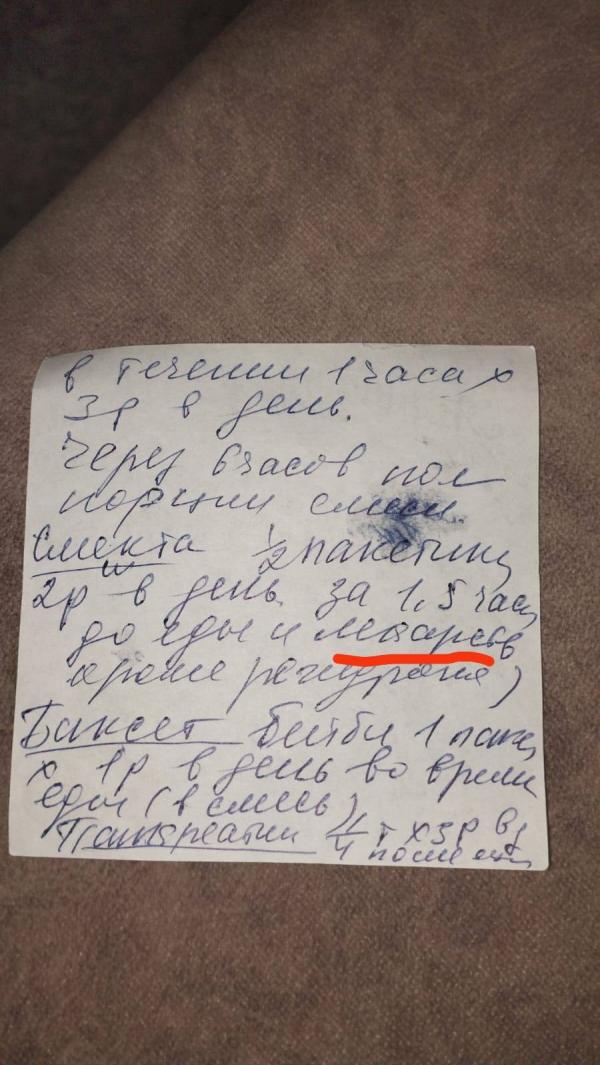 в течении 1 часа х
3р в день.
Через 6 часов пол
порции смеси.
Смекта 1/2 пакетика
2р в день за 1,5 часа
до еды и лекарств
кроме регидрона)
Баксет беби 1 паке
х 1р в день во время
еды (в смесь)
Панкреатин 1/4 т х 3р в д
после еды